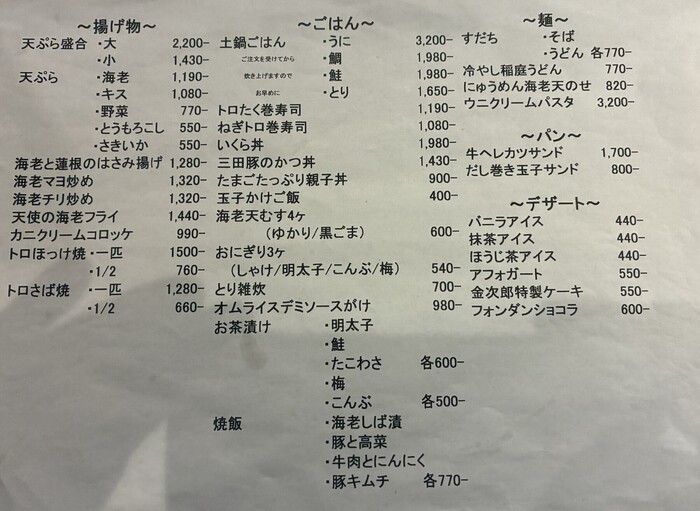 ～揚げ物～
天ぷら盛合 ・大 2,200-
・小 1,430-
天ぷら ・海老 1,190-
・キス 1,080-
・野菜 770-
・とうもろこし 550-
・さきいか 550-
海老と蓮根のはさみ揚げ 1,280-
海老マヨ炒め 1,320-
海老チリ炒め 1,320-
天使の海老フライ 1,440-
カニクリームコロッケ 990-
トロほっけ焼 ・一匹 1500-
・1/2 760-
トロさば焼 ・一匹 1,280-
・1/2 660-
～ごはん～
土鍋ごはん ・うに 3,200-
ご注文を受けてから ・鯛 1,980-
炊き上げますので ・鮭 1,980-
お早めに ・とり 1,650-
トロたく巻寿司 1,190-
ねぎトロ巻寿司 1,080-
いくら丼 1,980-
三田豚のかつ丼 1,430-
たまごたっぷり親子丼 900-
玉子かけご飯 400-
海老天むす4ヶ
(ゆかり/黒ごま) 600-
おにぎり3ヶ
(しゃけ/明太子/こんぶ/梅) 540-
とり雑炊 700-
オムライスデミソースがけ 980-
お茶漬け ・明太子
・鮭
・たこわさ 各600-
・梅
・こんぶ 各500-
焼飯 ・海老しば漬
・豚と高菜
・牛肉とにんにく
・豚キムチ 各770-
～麺～
すだち ・そば
・うどん 各770-
冷やし稲庭うどん 770-
にゅうめん海老天のせ 820-
ウニクリームパスタ 3,200-
～パン～
牛ヘレカツサンド 1,700-
だし巻き玉子サンド 800-
～デザート～
バニラアイス 440-
抹茶アイス 440-
ほうじ茶アイス 440-
アフォガート 550-
金次郎特製ケーキ 550-
フォンダンショコラ 600-